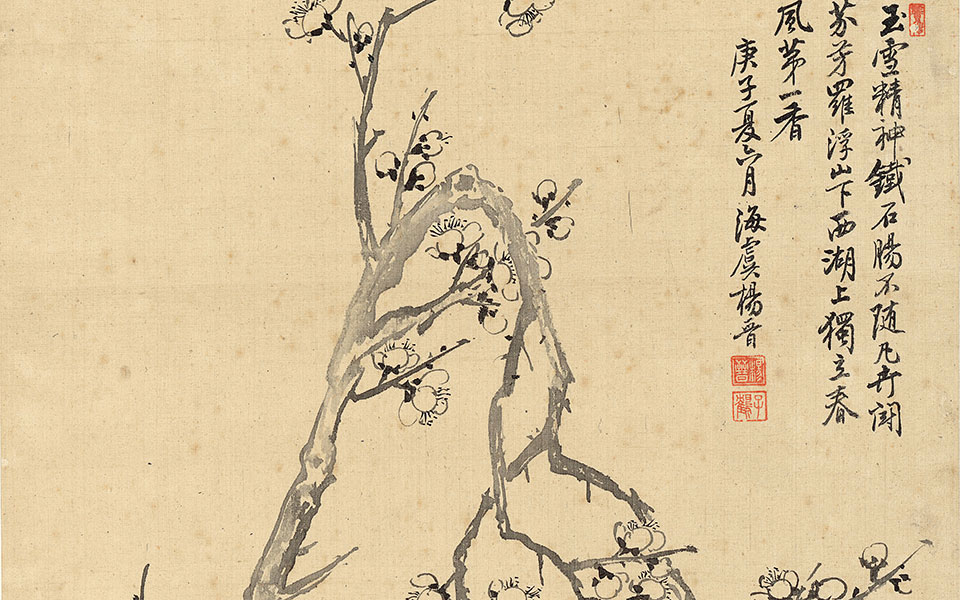 玉雪精神鐵石腸不随凡卉鬪
芬芳羅浮山下西湖上獨立春
風苐一香
庚子夏六月海虞楊晉
楊晉
子鶴